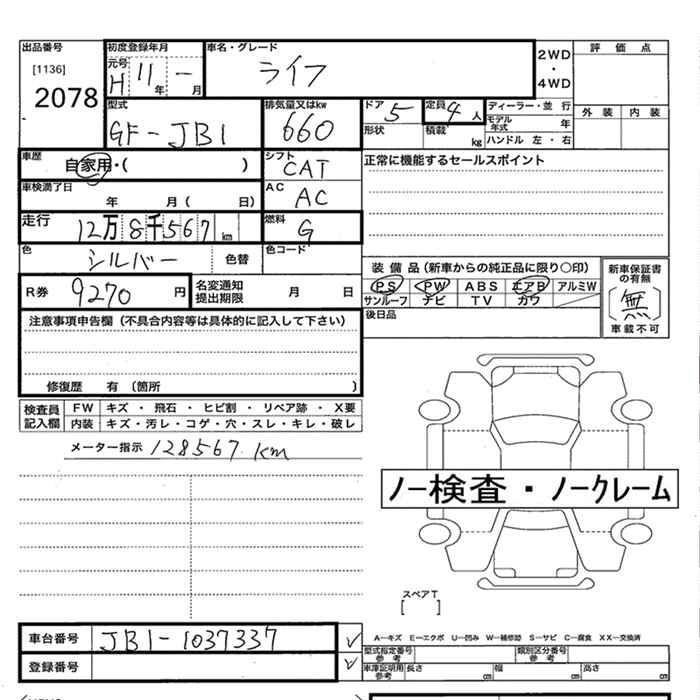 出品番号 初度登録年月 車名・グレード 2WD・4WD 評価点
[1136] 元号 H 11 年 一 月 ライフ
2078
型式 排気量又はkw ドア 5 定員 4 人 ディーラー・並行 外装 内装
GF-JB1 660 形状 積載 kg モデル年式 年
ハンドル 左・右
車歴 自家用・( ) シフト CAT 正常に機能するセールスポイント
車検満了日 年 月( 日) AC AC
走行 12万8千567km 燃料 G
色 シルバー 色替 色コード
装備品(新車からの純正品に限り〇印) 新車保証書の有無
R券 9270 円 名変通知提出期限 月 日 PS PW ABS エアB アルミW 〔無〕
サンルーフ ナビ TV カワ 車載不可
注意事項申告欄(不具合内容等は具体的に記入して下さい) 後日品
修復歴 有(箇所 )
検査員記入欄 FW キズ・飛石・ヒビ割・リペア跡・X要
内装 キズ・汚レ・コゲ・穴・スレ・キレ・破レ
メーター指示 128567km
ノー検査・ノークレーム
スペアT
[ ]
車台番号 JB1-1037337 A―キズ E―エクボ U―凹み W―補修跡 S―サビ C―腐食 XX―交換済
型式指定番号 参考 類別区分番号 参考
登録番号 車庫証明用参考 長さ cm 幅 cm 高さ cm